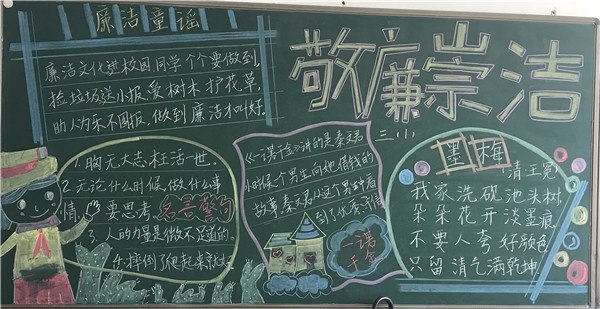 廉洁童谣
廉洁文化进校园同学个个要做到,
捡垃圾送小报,爱树木护花草,
助人为乐不图报,做到廉洁才叫好。
敬廉崇洁
1.胸无大志,枉活一世。
2.无论什么时候,做什么事
情,要思考。
名言警句
3.人的力量是微不足道的。
4.摔倒了爬起来就好
《一诺千金》讲的是秦文君
小时候个男生向她借钱的
故事秦文君从这个男神看
到了优秀
一诺
千金
墨梅
清王冕
我家洗砚池头树
朵朵花开淡墨痕
不要人夸好颜色
只留清气满乾坤